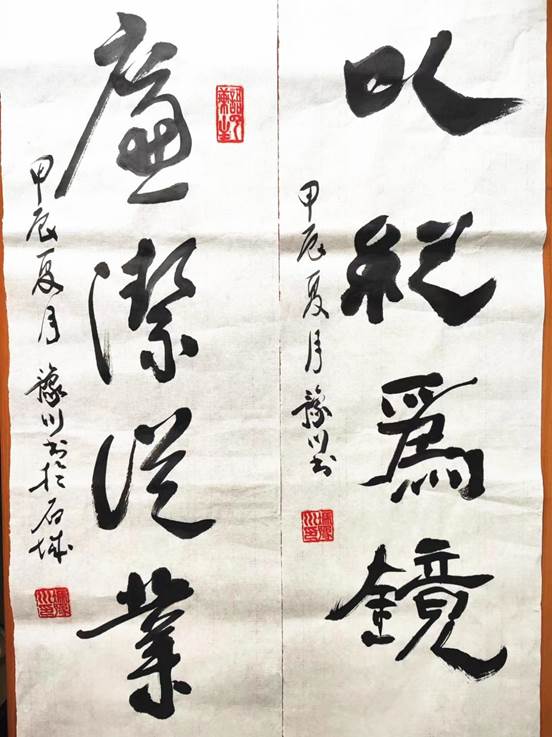 以紀爲鏡
甲辰夏月豫川書
廉潔從業
甲辰夏月豫川書於石城